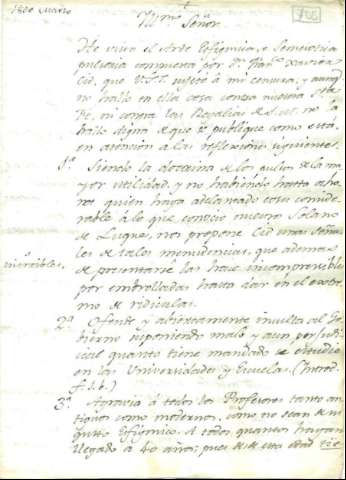 1800 Madrid
706
Yll.mo Señor.
He visto el Arte Esfigmica, o Semeyotica
pulsoria compuesta por D.n Fran.co Xavier
Cid, que V.S.I. sugetó à mi censura, y aunq.e
no hallo en ella cosa contra nuestra S.ta
Fe, ni contra las Regalias de S.M. no la
hallo digna de que se publique como està,
en atencion à las reflexiones siguientes.
1.ª Siendo la doctrina de los pulsos de la ma-
yor utilidad, y no habiendo hasta aho-
ra quien haya adelantado cosa conside-
rable à lo que conocio nuestro Solano
de Luque, nos propone Cid unas señal-
les de tales menudencias, que ademas
invisibles,
de presentarse las hace incomprensibles
por embrolladas hasta dar en el extre-
mo de ridiculas.
2.ª Ofende y abiertamente insulta al Go-
bierno suponiendo malo y aun perjudi-
cial quanto tiene mandado se estudie
en las Universidades y Escuelas. (Introd.
f. 1. b.)
3.ª Agravia à todos los Profesores tanto an-
tiguos como modernos, como no sean de su
gusto Esfigmico. A todos quantos hayan
llegado à 40 años; pues de esta edad